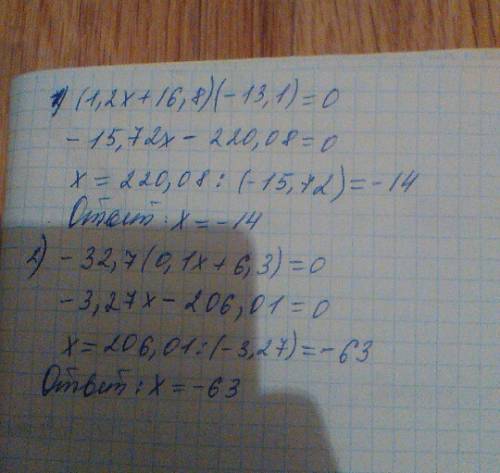 1) (1,2x+16,8)(-13,1)=0
-15,72x-220,08=0
x=220,08:(-15,72)=-14
Ответ: x=-14
2) -32,7(0,1x+6,3)=0
-3,27x-206,01=0
x=206,01:(-3,27)=-63
Ответ: x=-63